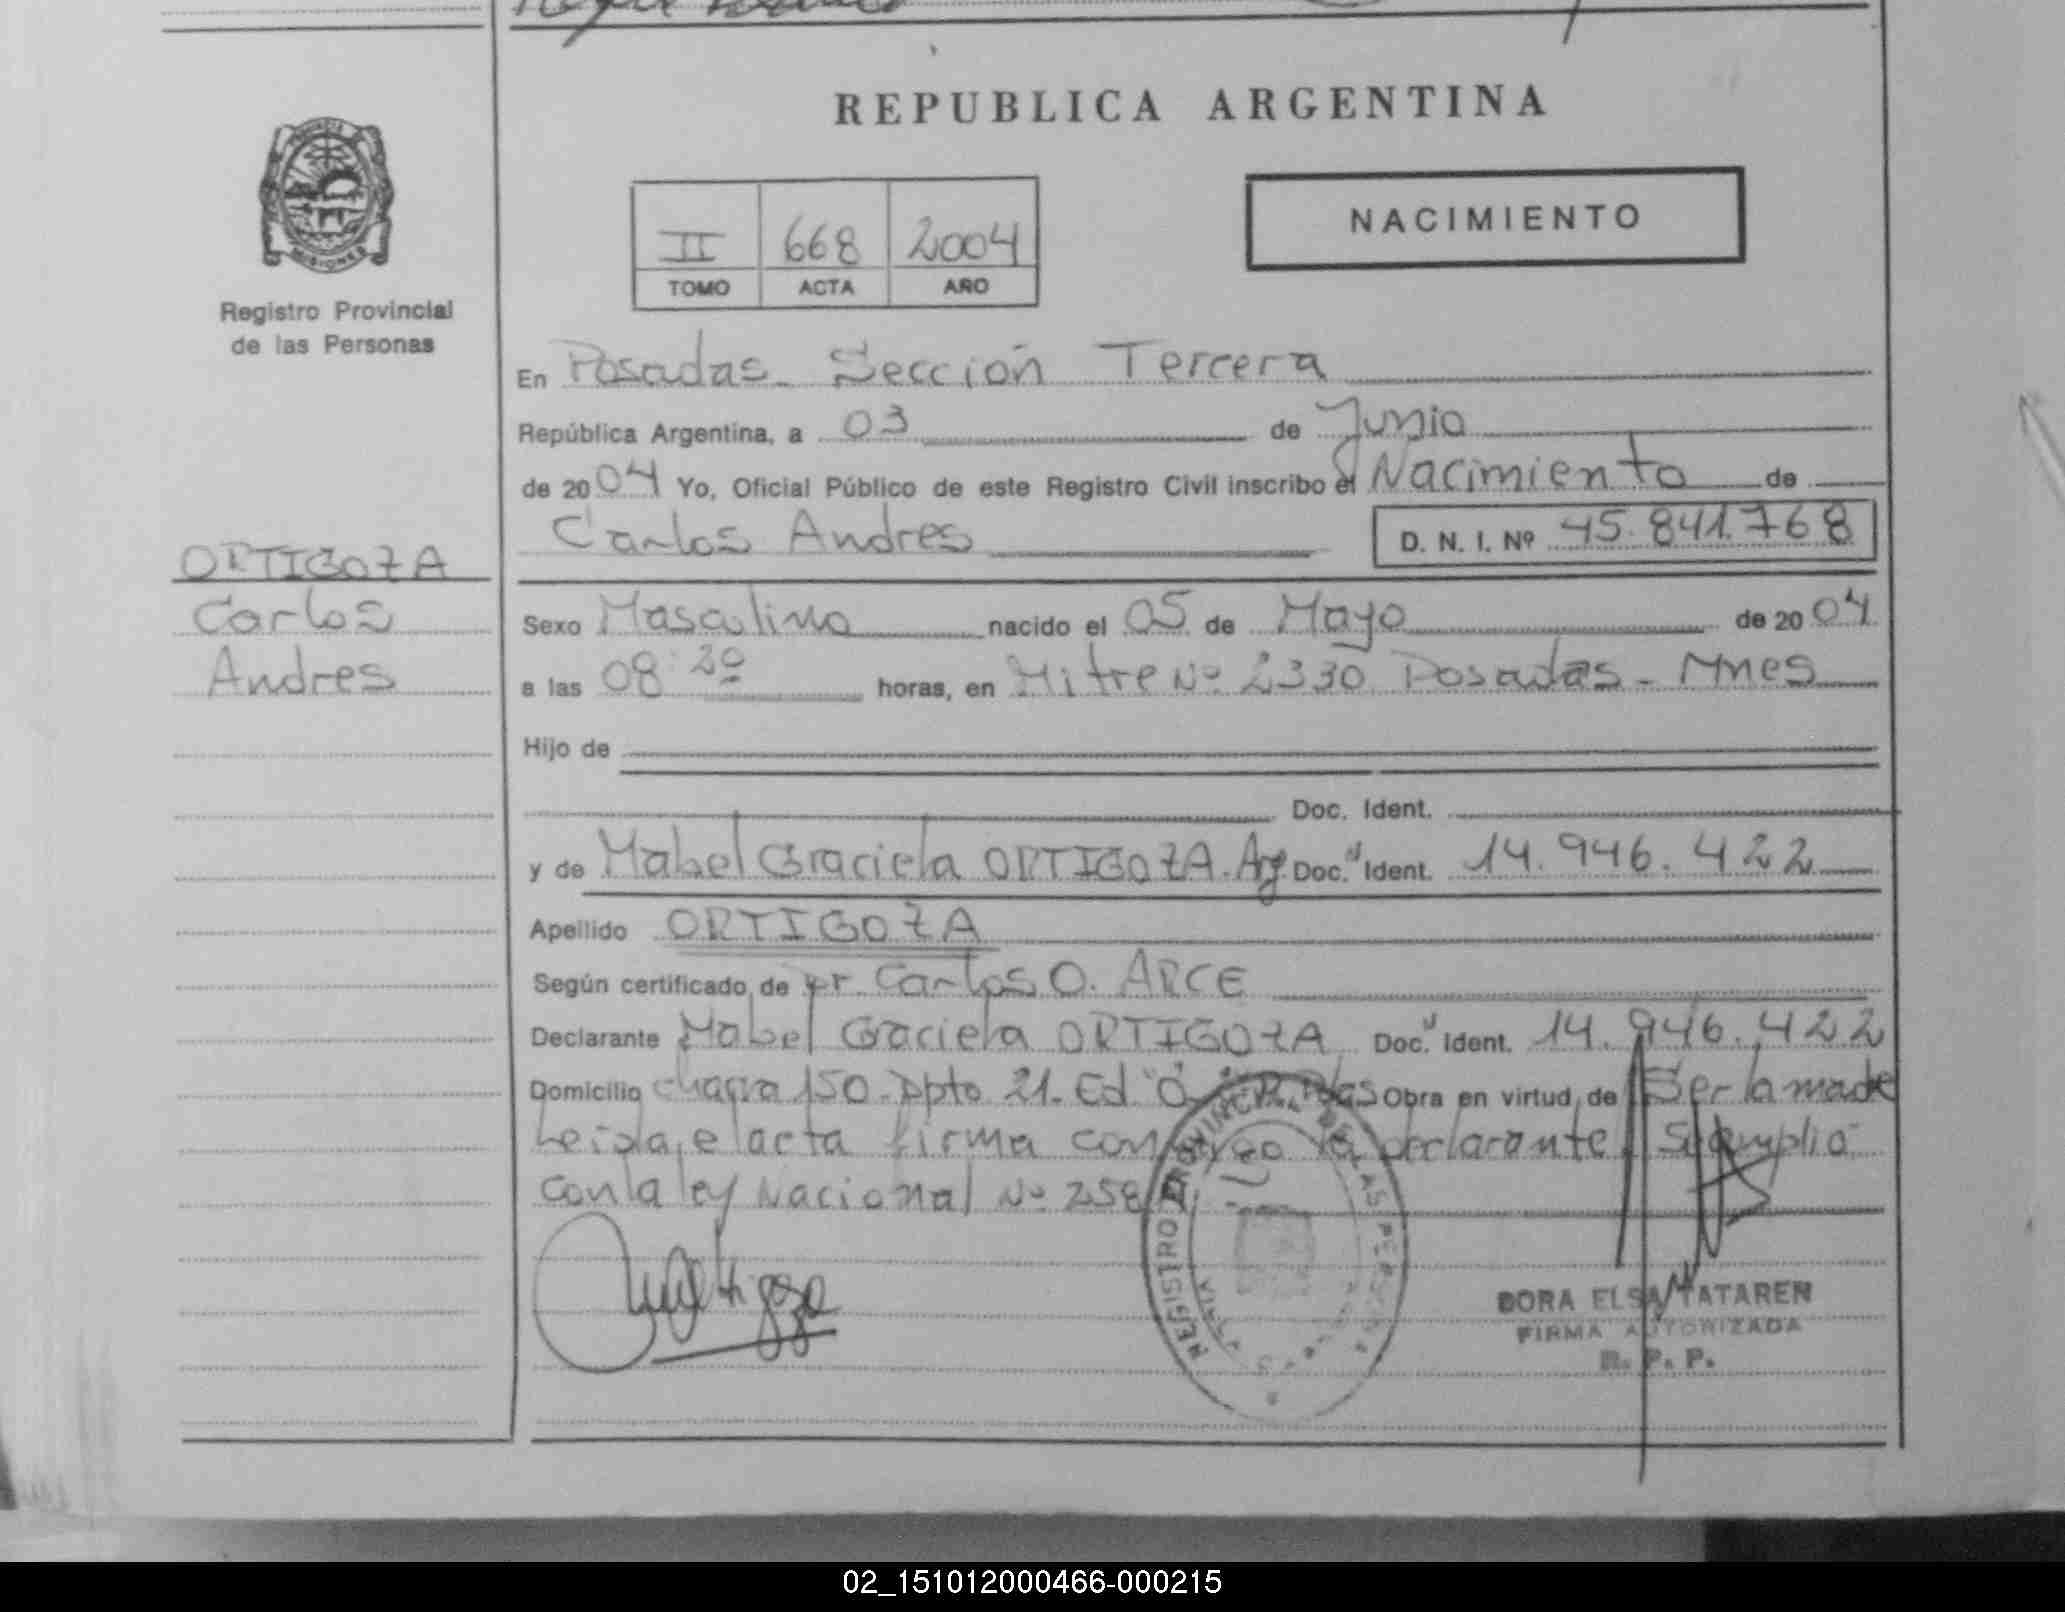 REPUBLICA ARGENTINA
NACIMIENTO
II 668 2004
TOMO ACTA AÑO
MISIONES
Registro Provincial
de las Personas
En Posadas. Sección Tercera
República Argentina, a 03 de Junio
de 2004 Yo, Oficial Público de este Registro Civil inscribo el Nacimiento de
Carlos Andres D. N. I. Nº 45.841.768
ORTIGOZA
Carlos
Andres
Sexo Masculino nacido el 05 de Mayo de 2004
a las 08:20 horas, en Mitre Nº 2330 Posadas - Mnes
Hijo de
Doc. Ident.
y de Mabel Graciela ORTIGOZA. Arg Doc. Ident. 14.946.422
Apellido ORTIGOZA
Según certificado de Dr Carlos O. ARCE
Declarante Mabel Graciela ORTIGOZA Doc. Ident. 14.946.422
Domicilio chacra 150. Dpto 21. Ed "O" Obra en virtud de Ser la madre
Leida el acta firma conmigo la declarante. Se cumplio
con la ley Nacional Nº
REGISTRO PROVINCIAL DE LAS PERSONAS
DORA ELSA TATAREN
FIRMA AUTORIZADA
R. P. P.
02_151012000466-000215